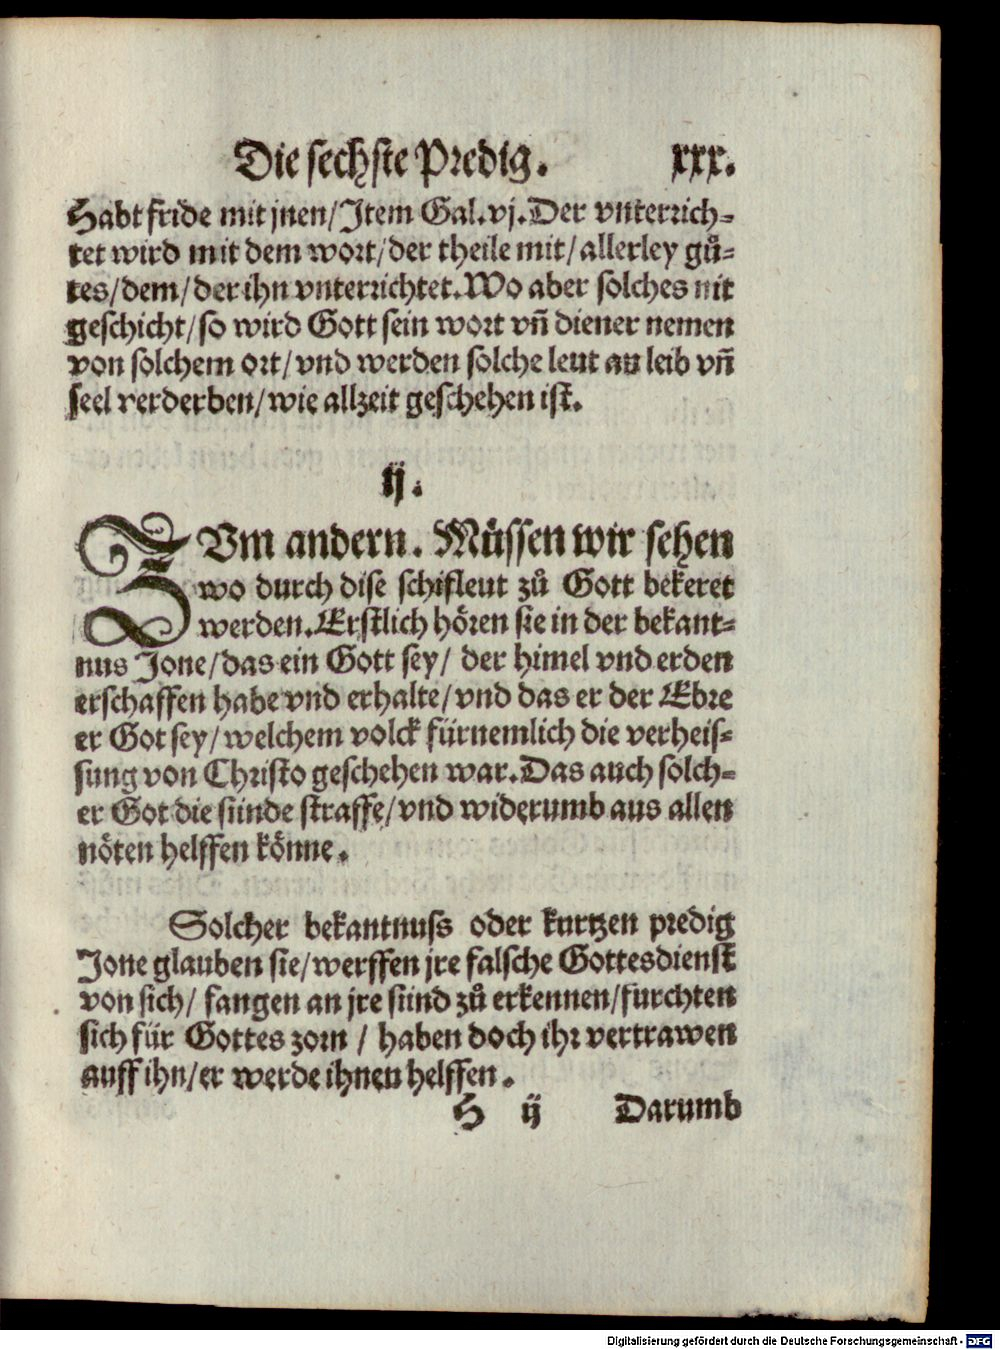 Die sechste Predig. xxx.
Habt fride mit jnen/Item Gal.vj.Der vnterrich-
tet wird mit dem wort/der theile mit/allerley gů-
tes/dem/der ihn vnterrichtet.Wo aber solches nit
geschicht/so wird Gott sein wort vñ diener nemen
von solchem ort/vnd werden solche leut an leib vñ
seel verderben/wie allzeit geschehen ist.
ij.
ZVm andern. Müssen wir sehen
wo durch dise schifleut zů Gott bekeret
werden.Erstlich hören sie in der bekant-
nus Jone/das ein Gott sey/ der himel vnd erden
erschaffen habe vnd erhalte/vnd das er der Ebre
er Got sey/welchem volck fürnemlich die verheis-
sung von Christo geschehen war.Das auch solch-
er Got die sünde straffe/vnd widerumb aus allen
nöten helffen könne.
Solcher bekantnuss oder kurtzen predig
Jone glauben sie/werffen jre falsche Gottesdienst
von sich/ fangen an jre sünd zů erkennen/furchten
sich für Gottes zorn / haben doch ihr vertrawen
auff ihn/er werde ihnen helffen.
H ij Darumb
Digitalisierung gefördert durch die Deutsche Forschungsgemeinschaft - DFG